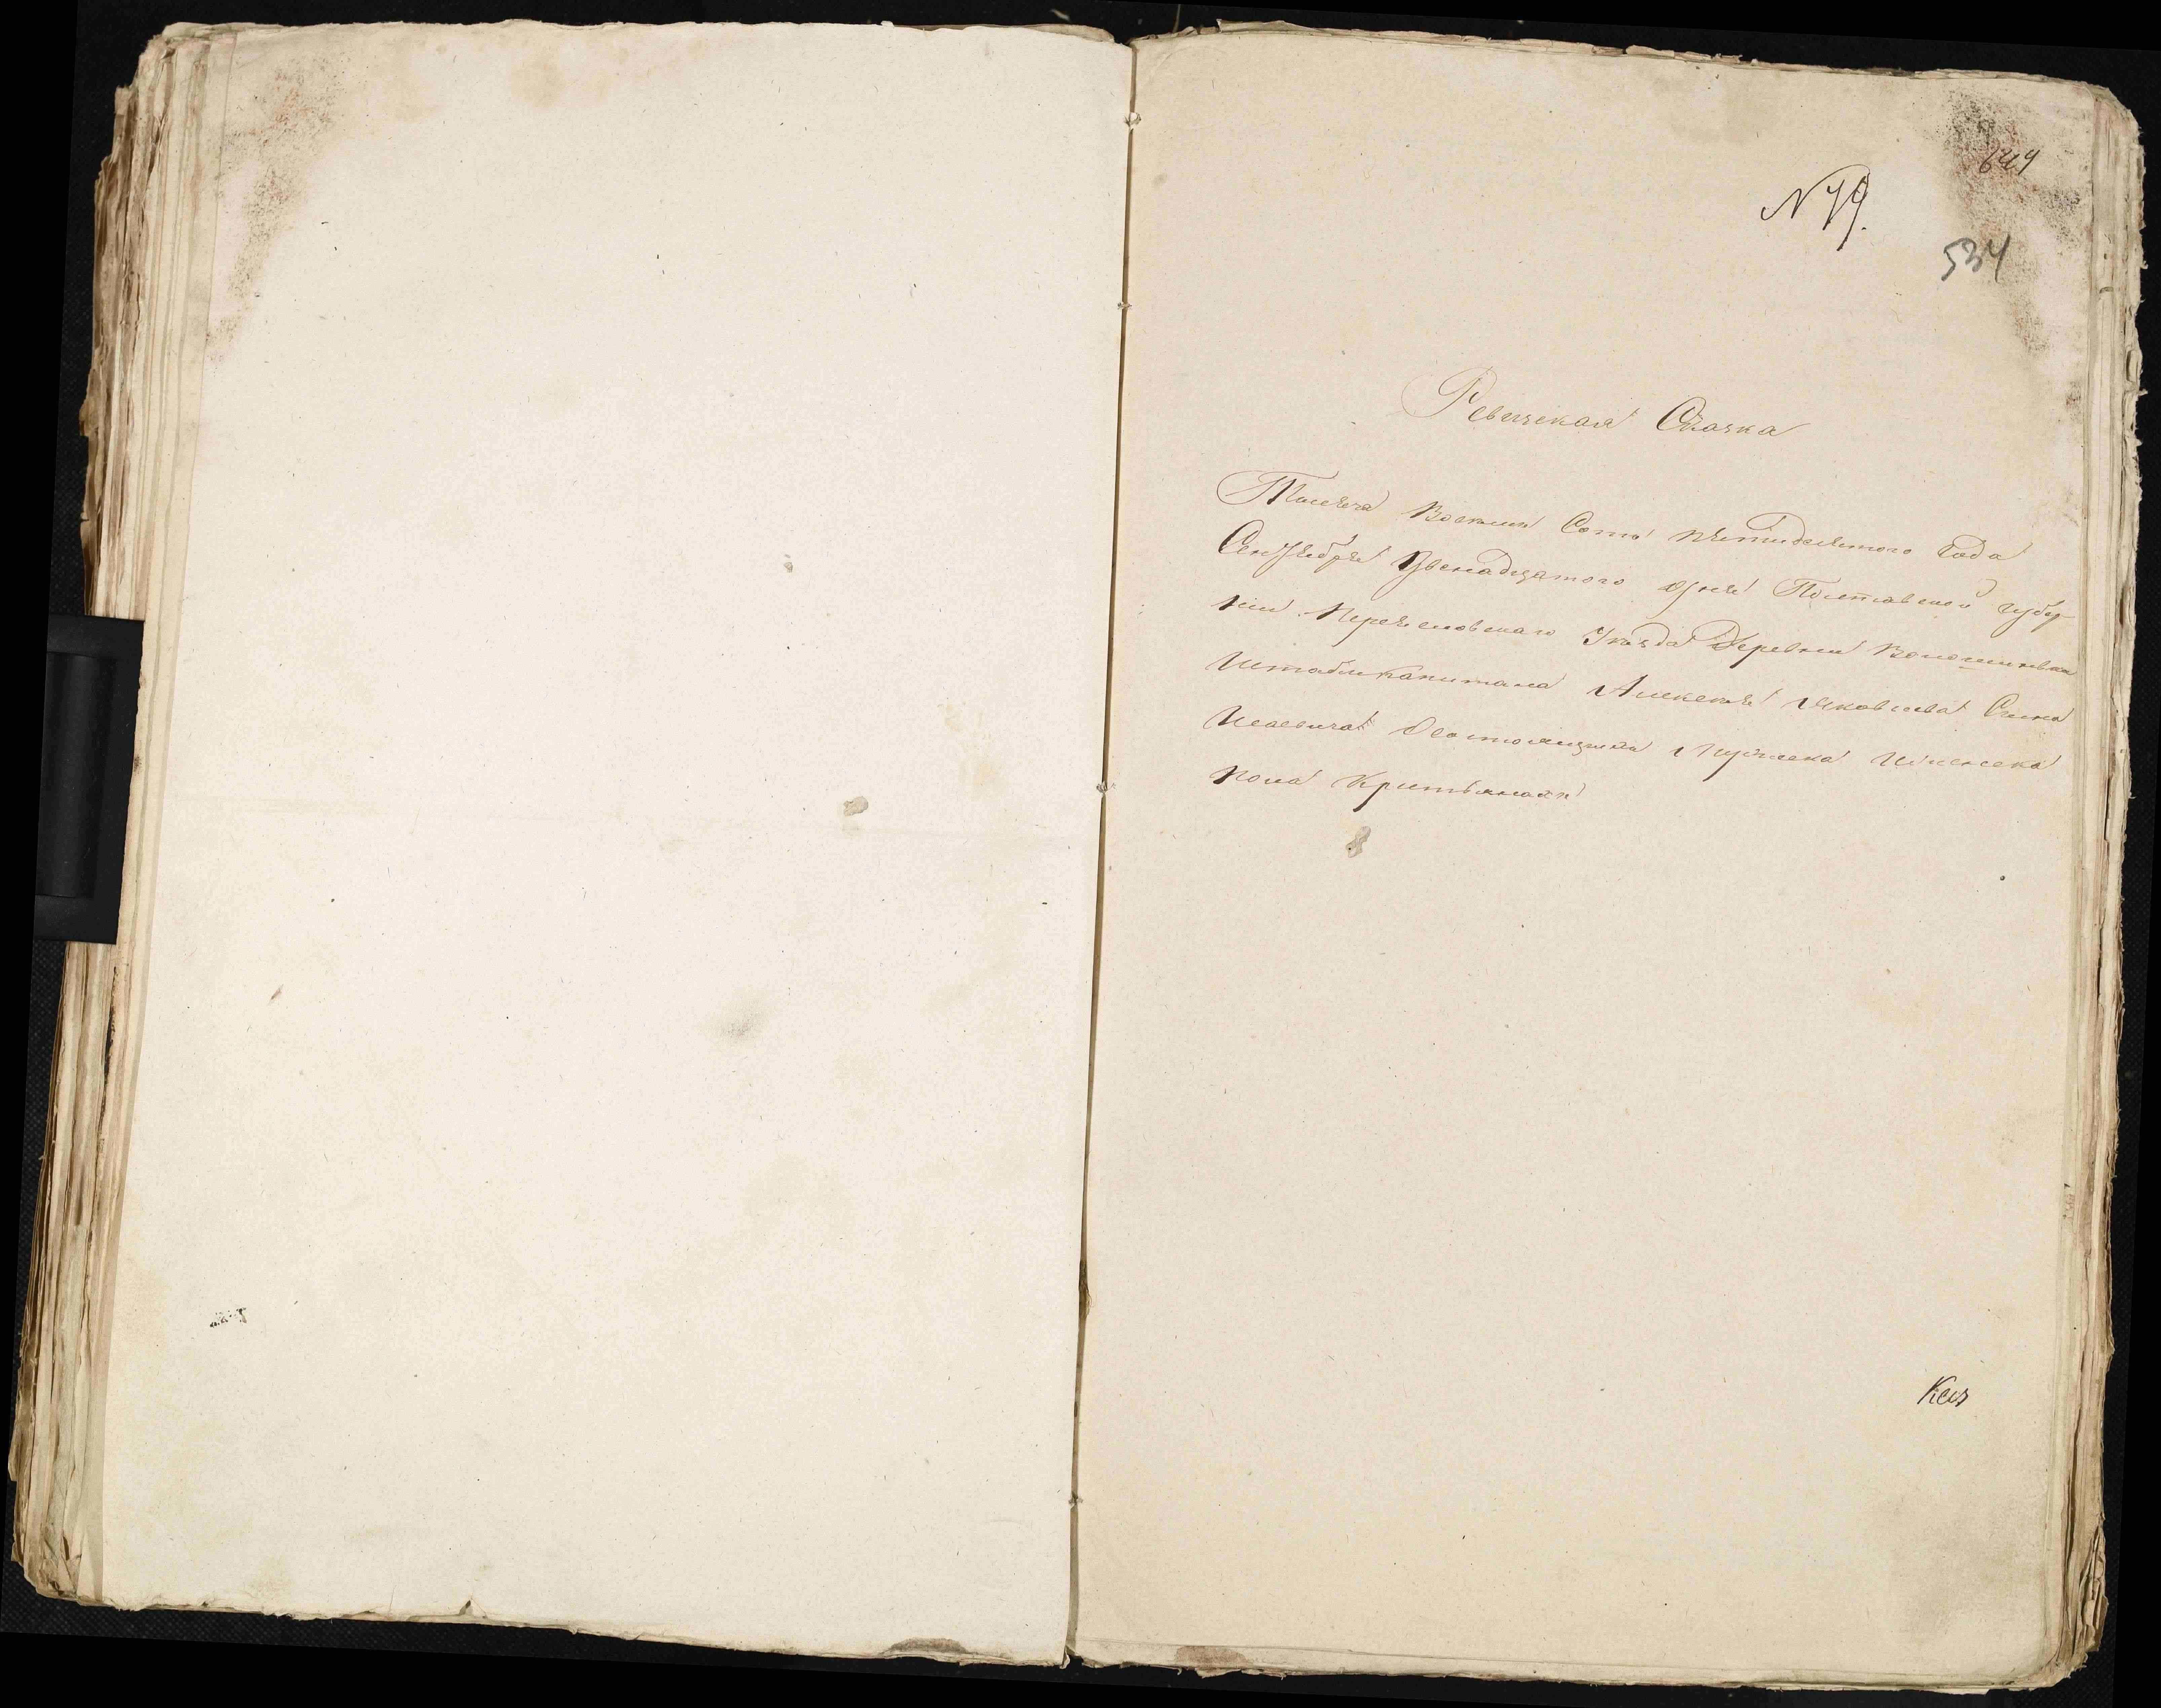 N 79.
534
Ревизская Сказка
Тысяча Восемь Сотъ пятидесятого года
Сентября Двенадцатого дня Полтавской губер-
нии Переяславскаго Уезда Деревни Волошиновки
Штабскапитана Алексея Яковлева Сына
о состоящихъ мужеска и женска
пола Крестьянахъ